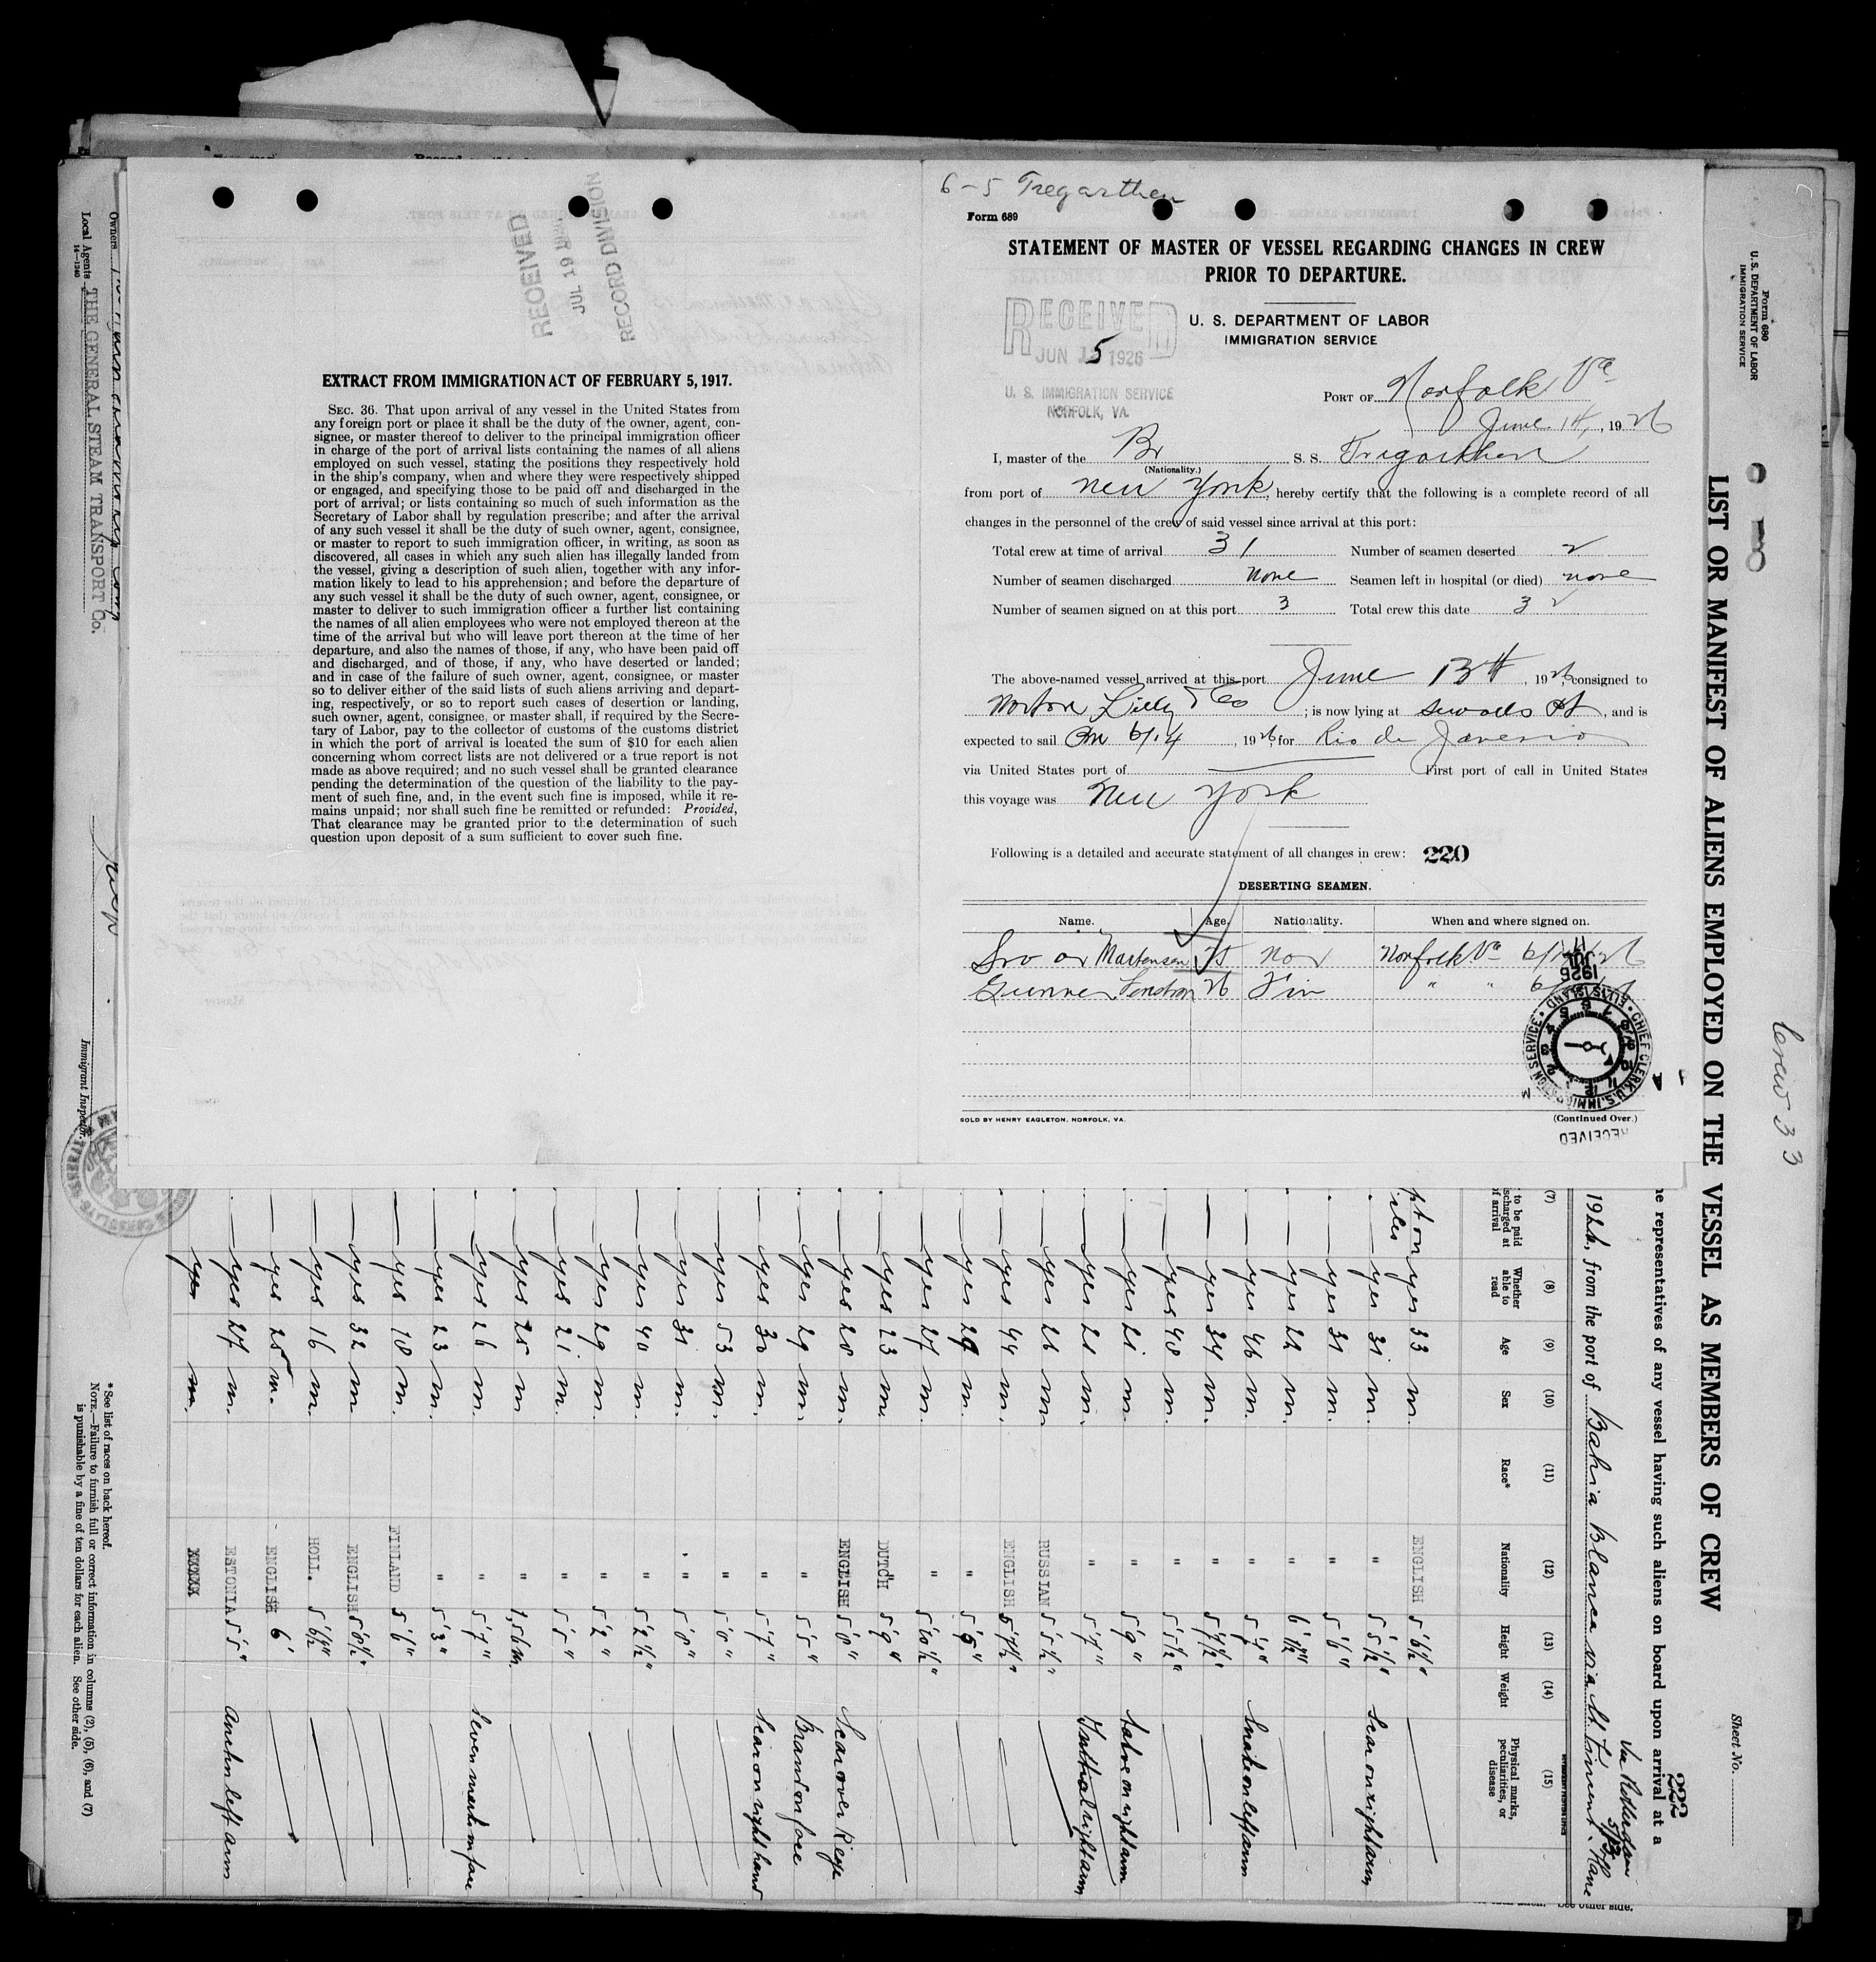 RECEIVED
JUL 19
RECORD DIVISION
EXTRACT FROM IMMIGRATION ACT OF FEBRUARY 5, 1917.
SEC. 36. That upon arrival of any vessel in the United States from
any foreign port or place it shall be the duty of the owner, agent, con-
signee, or master thereof to deliver to the principal immigration officer
in charge of the port of arrival lists containing the names of all aliens
employed on such vessel, stating the positions they respectively hold
in the ship's company, when and where they were respectively shipped
or engaged, and specifying those to be paid off and discharged in the
port of arrival; or lists containing so much of such information as the
Secretary of Labor shall by regulation prescribe; and after the arrival
of any such vessel it shall be the duty of such owner, agent, consignee,
or master to report to such immigration officer, in writing, as soon as
discovered, all cases in which any such alien has illegally landed from
the vessel, giving a description of such alien, together with any infor-
mation likely to lead to his apprehension; and before the departure of
any such vessel it shall be the duty of such owner, agent, consignee, or
master to deliver to such immigration officer a further list containing
the names of all alien employees who were not employed thereon at the
time of the arrival but who will leave port thereon at the time of her
departure, and also the names of those, if any, who have been paid off
and discharged, and of those, if any, who have deserted or landed;
and in case of the failure of such owner, agent, consignee, or master
so to deliver either of the said lists of such aliens arriving and depart-
ing, respectively, or so to report such cases of desertion or landing,
such owner, agent, consignee, or master shall, if required by the Secre-
tary of Labor, pay to the collector of customs of the customs district
in which the port of arrival is located the sum of $10 for each alien
concerning whom correct lists are not delivered or a true report is not
made as above required; and no such vessel shall be granted clearance
pending the determination of the question of the liability to the pay-
ment of such fine, and, in the event such fine is imposed, while it re-
mains unpaid; nor shall such fine be remitted or refunded: Provided,
That clearance may be granted prior to the determination of such
question upon deposit of a sum sufficient to cover such fine.
6-5 Tregarthen
Form 689
STATEMENT OF MASTER OF VESSEL REGARDING CHANGES IN CREW
PRIOR TO DEPARTURE.
RECEIVED
JUN 15 1926
U. S. IMMIGRATION SERVICE
NORFOLK, VA.
U. S. DEPARTMENT OF LABOR
IMMIGRATION SERVICE
PORT OF Norfolk Va
June 14, 1926
I, master of the Br S. S. Tregarthen
(Nationality.)
from port of New York, hereby certify that the following is a complete record of all
changes in the personnel of the crew of said vessel since arrival at this port:
Total crew at time of arrival 31 Number of seamen deserted 2
Number of seamen discharged none Seamen left in hospital (or died) none
Number of seamen signed on at this port 3 Total crew this date 32
The above-named vessel arrived at this port June 13th, 1926, consigned to
Norton Lilly & Co; is now lying at Sewalls Pt, and is
expected to sail On 6/14, 1926, for Rio de Janerio
via United States port of First port of call in United States
this voyage was New York
Following is a detailed and accurate statement of all changes in crew: 220
DESERTING SEAMEN.
Name. Age. Nationality. When and where signed on.
Martensen Nor Norfolk Va
Gunner 26 Fin " "
JUL
1926
CHIEF CLERK, U.S. IMMIGRATION SERVICE · ELLIS ISLAND ·
RECEIVED
SOLD BY HENRY EAGLETON, NORFOLK, VA.
(Continued Over.)
Owners
Local Agents THE GENERAL STEAM TRANSPORT Co.
14-1240
Immigrant Inspector.
* See list of races on back hereof.
NOTE.—Failure to furnish full or correct information in columns (2), (5), (6), and (7)
is punishable by a fine of ten dollars for each alien. See other side.
Form 680
U. S. DEPARTMENT OF LABOR
IMMIGRATION SERVICE
Crew 33
Sheet No.
LIST OR MANIFEST OF ALIENS EMPLOYED ON THE VESSEL AS MEMBERS OF CREW
222
representatives of any vessel having such aliens on board upon arrival at a
1926, from the port of Bahia Blanca via St. Vincent
via Rotterdam
(7) (8) (9) (10) (11) (12) (13) (14) (15)
to be paid Whether able to read Age Sex Race* Nationality Height Weight Physical marks, peculiarities, or disease
yes 33 m. ENGLISH 5'6½"
yes 31 m. " 5'5½" Scar on right arm
yes 31 m. " 5'6"
yes 22 m. " 6'
yes 46 m. " 5'7" Snake on left arm
yes 34 m. " 5'7½"
yes 48 m. " 5'5½"
yes 21 m. " 5'9" on right arm
yes 21 m. " 5'7" right arm
yes 26 m. RUSSIAN 5'5½"
yes 44 m. ENGLISH 5'7½"
yes 29 m. " 5'6"
yes 27 m. " 5'10½"
yes 23 m. DUTCH 5'9"
yes 20 m. ENGLISH 5'8" Scar over R eye
yes 29 m. " 5'5" Brand on face
yes 30 m. " 5'7" Scar on right hand
yes 53 m. " 5'8"
yes 31 m. " 5'8"
yes 40 m. " 5'2½"
yes 29 m. " 5'2"
yes 21 m. " 5'5"
yes 25 m. " 1,56 m.
yes 26 m. " 5'7" Seven marks on face
yes 23 m. " 5'3"
yes 18 m. FINLAND 5'6"
yes 32 m. ENGLISH 5'8½"
yes 16 m. HOLL. 5'6½"
yes 25 m. ENGLISH 6'
yes 27 m. ESTONIA 5'5" left arm
yes m.
See other side.